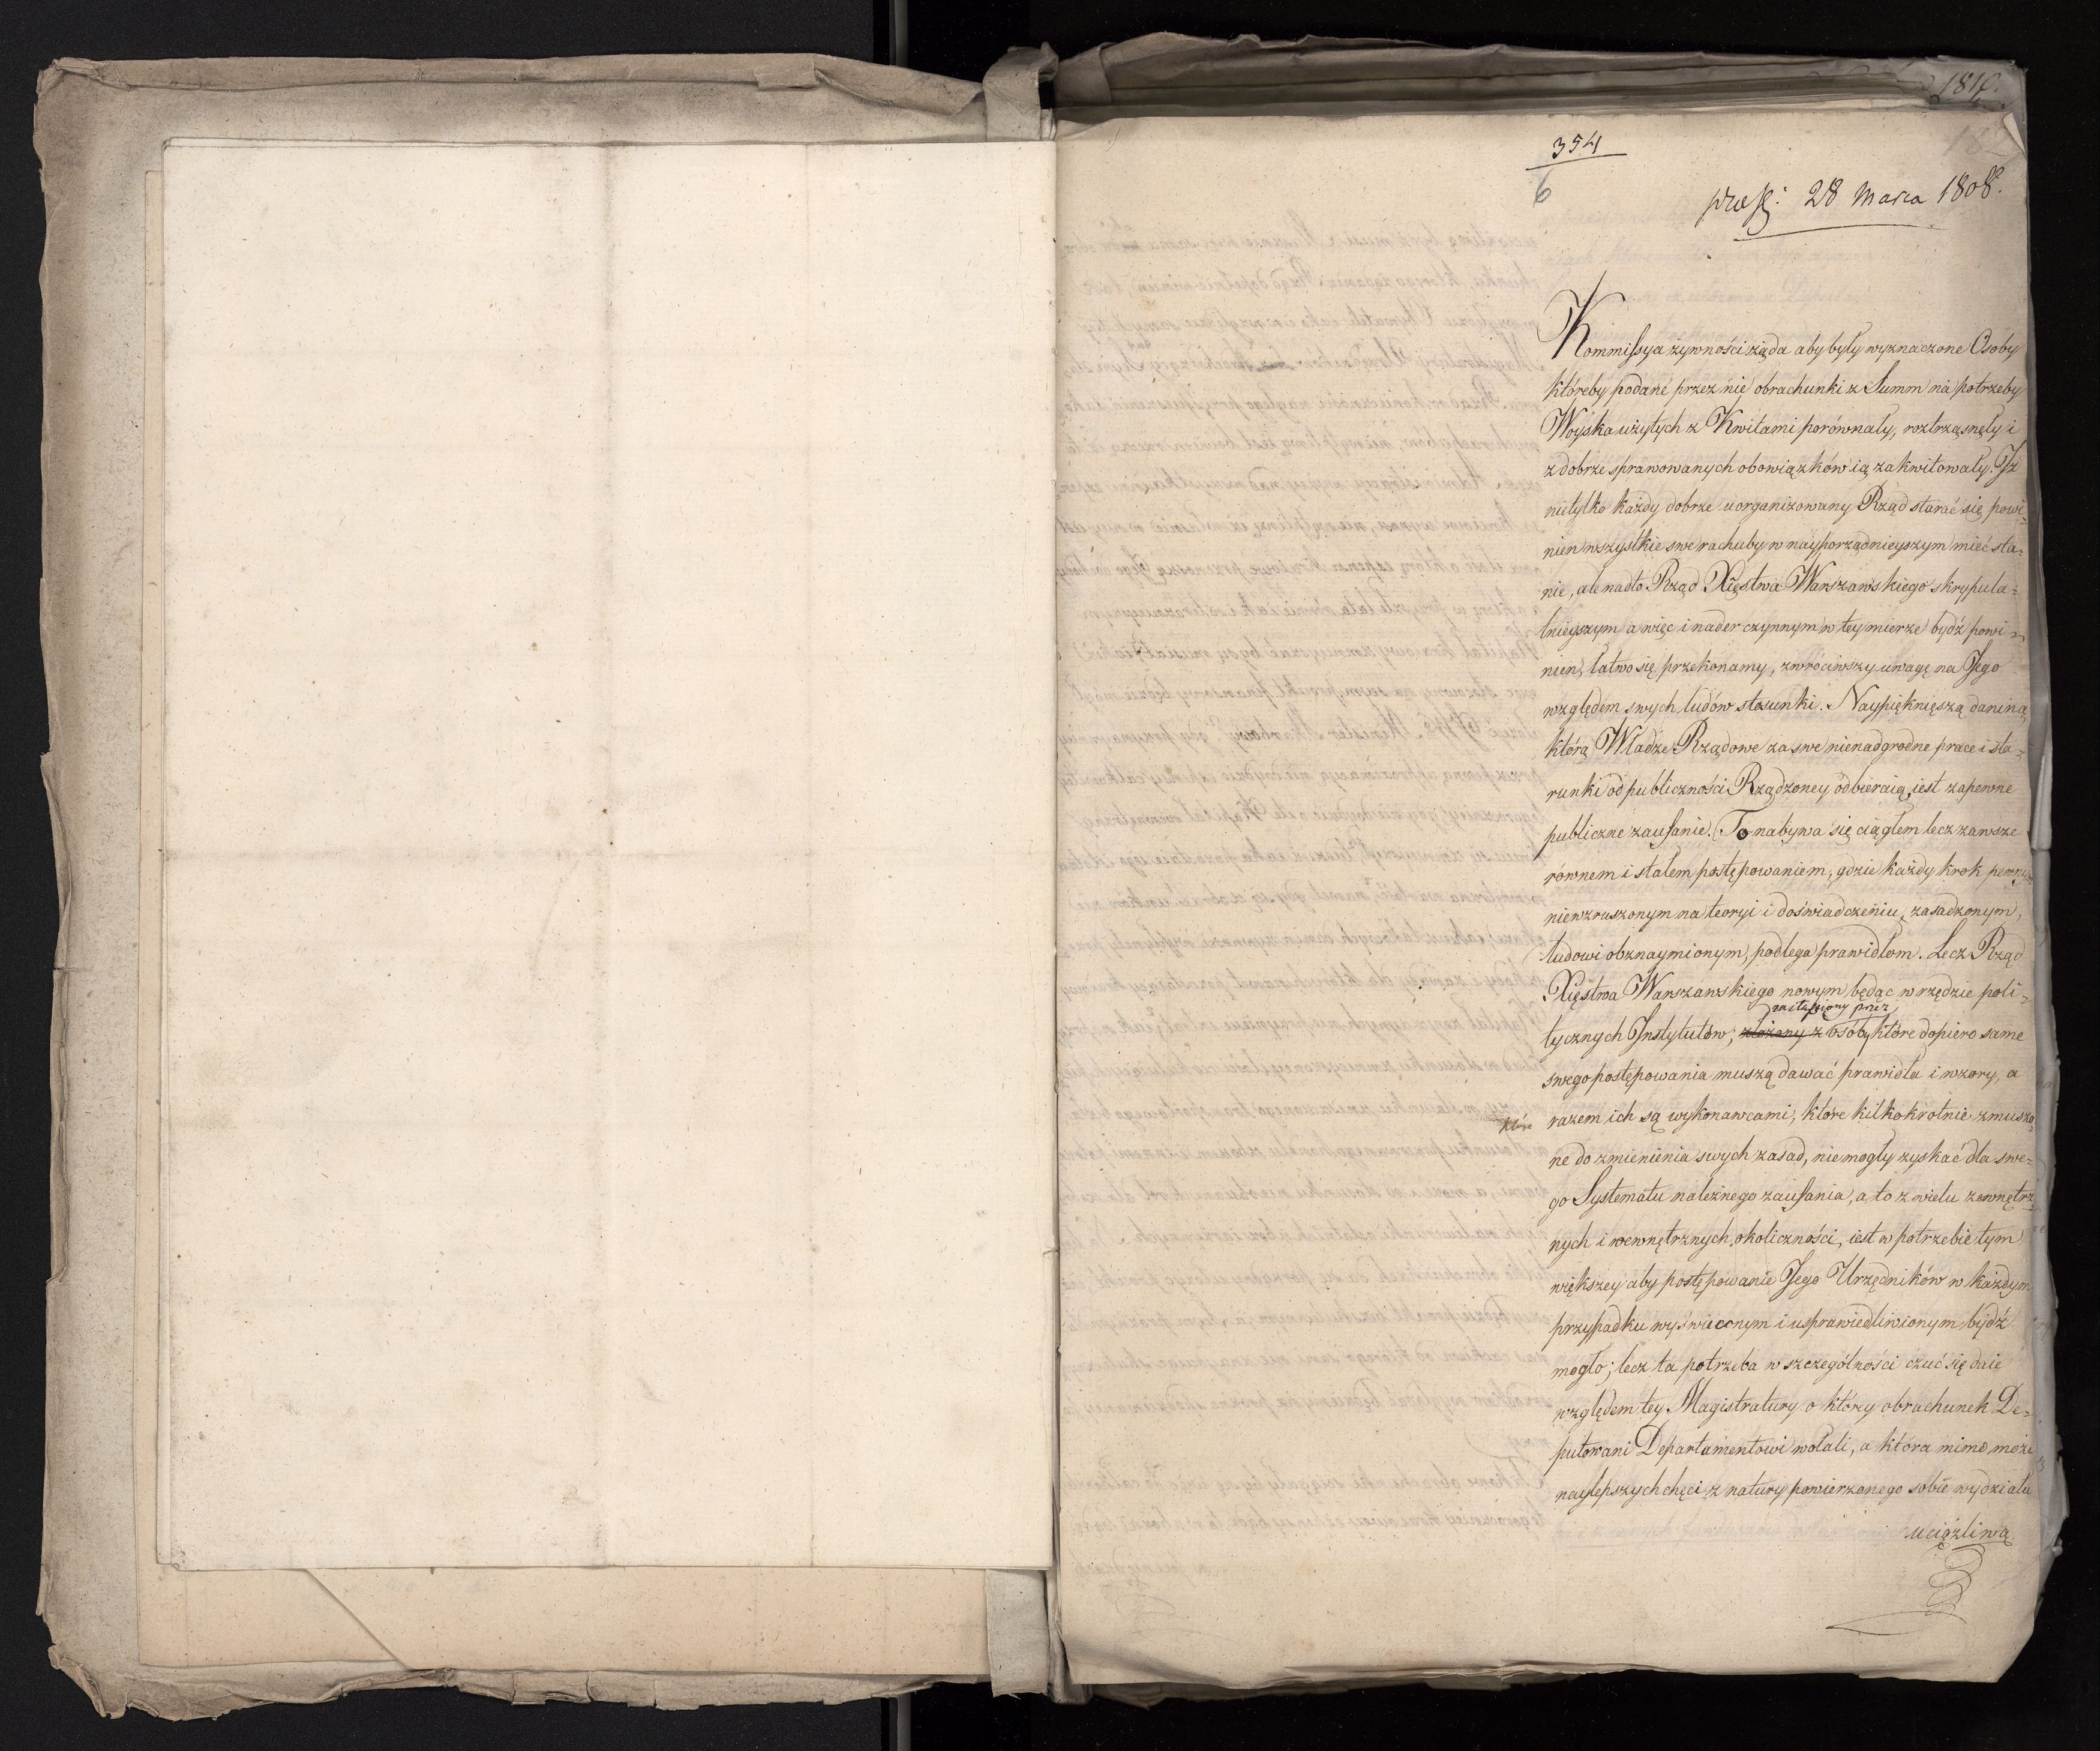 354
6
28 Marca 1808.
Kommissya żywności żąda aby były wyznaczone Osoby
któreby podane przez nię obrachunki z Summ na potrzeby
Woyska użytych z Kwitami porównały, roztrząsnęły i
z dobrze sprawowanych obowiązków ią zakwitowały. Iż
nietylko każdy dobrze uorganizowany Rząd starać się powi=
nien wszystkie swe rachuby w nayporządnieyszym mieć sta=
nie, ale nadto Rząd Xięstwa Warszawskiego skrypula=
tnieyszym a więc i nader czynnym w tey mierze bydź powi=
nien, łatwo się przekonamy, zwróciwszy uwagę na Jego
względem swych ludów stosunki. Naypięknięszą daniną
którą Władze Rządowe za swe nienadgrodne prace i sta=
runki od publiczności Rządzoney odbieraią, iest zapewne
publiczne zaufanie. To nabywa się ciągłem lecz zawsze
równem i stałem postępowaniem, gdzie każdy krok pewnym
niewzruszonym na teoryi i doświadczeniu, zasadzonym,
ludowi obznaymionym, podlega prawidłom. Lecz Rząd
Xięstwa Warszawskiego nowym będąc w rzędzie poli=
zastąpiony przez
tycznych Instytutów; złożony z osoby które dopiero same
swego postępowania muszą dawać prawidła i wzory, a
które
razem ich są wykonawcami, które kilkokrotnie zmuszo=
ne do zmienienia swych zasad, nie mogły zyskać dla swe=
go Systematu należnego zaufania, a to z wielu zewnętrz=
nych i wewnętrznych okoliczności, iest w potrzebie tym
większey aby postępowanie Jego Urzędników w każdym
przypadku wyświeconym i usprawiedliwionym bydź
mogło; lecz ta potrzeba w szczególności czuć się daie
względem tey Magistratury o który obrachunek De=
putowani Departamentowi wołali, a która mimo może
naylepszych chęci z natury powierzonego sobie wydziału
uciążliwą